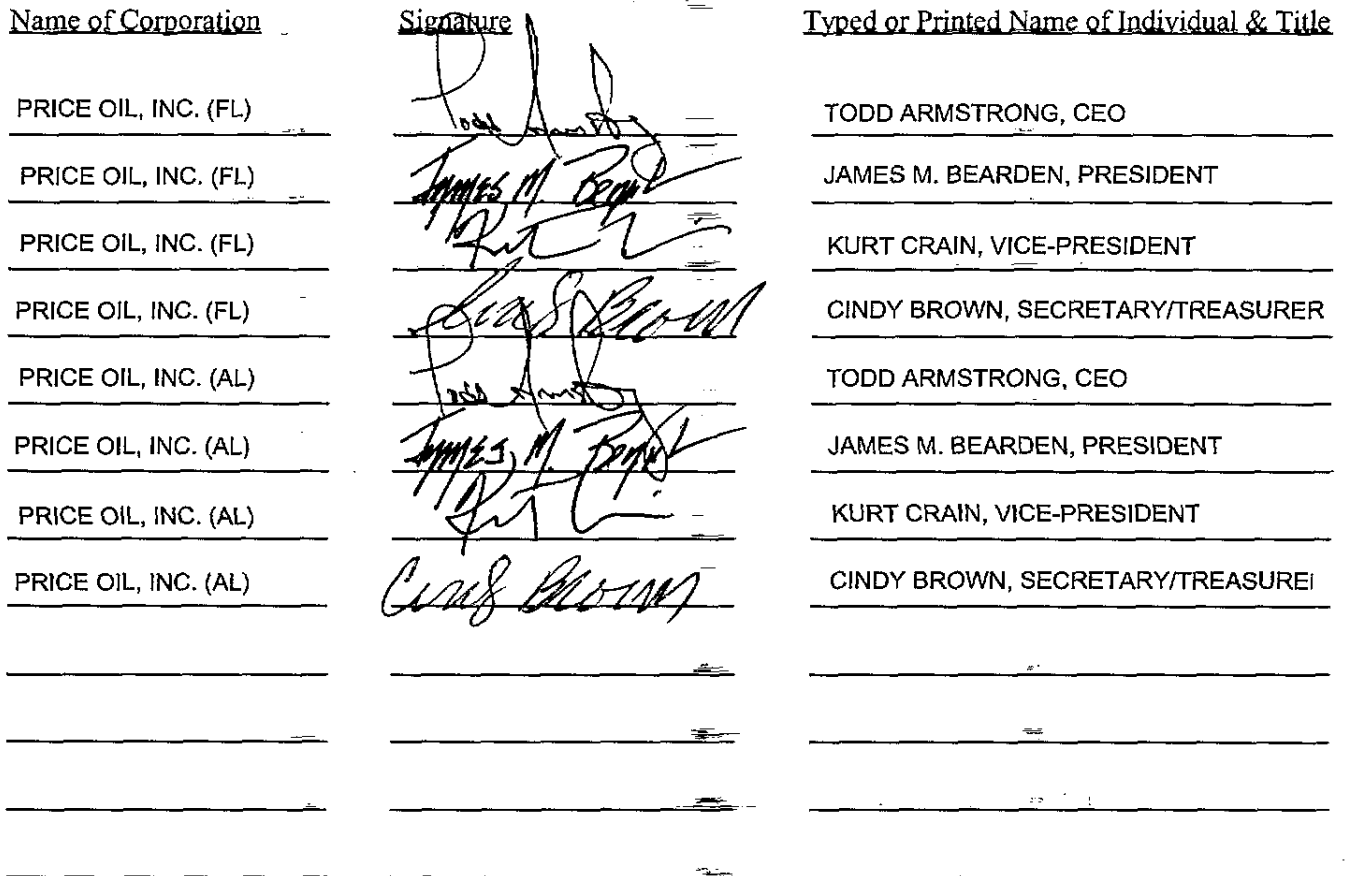 Name of Corporation Signature Typed or Printed Name of Individual & Title
PRICE OIL, INC. (FL) Todd Armstrong TODD ARMSTRONG, CEO
PRICE OIL, INC. (FL) James M. Bearden JAMES M. BEARDEN, PRESIDENT
PRICE OIL, INC. (FL) KURT CRAIN, VICE-PRESIDENT
PRICE OIL, INC. (FL) Cindy Brown CINDY BROWN, SECRETARY/TREASURER
PRICE OIL, INC. (AL) Todd Armstrong TODD ARMSTRONG, CEO
PRICE OIL, INC. (AL) James M. Bearden JAMES M. BEARDEN, PRESIDENT
PRICE OIL, INC. (AL) KURT CRAIN, VICE-PRESIDENT
PRICE OIL, INC. (AL) Cindy Brown CINDY BROWN, SECRETARY/TREASURE